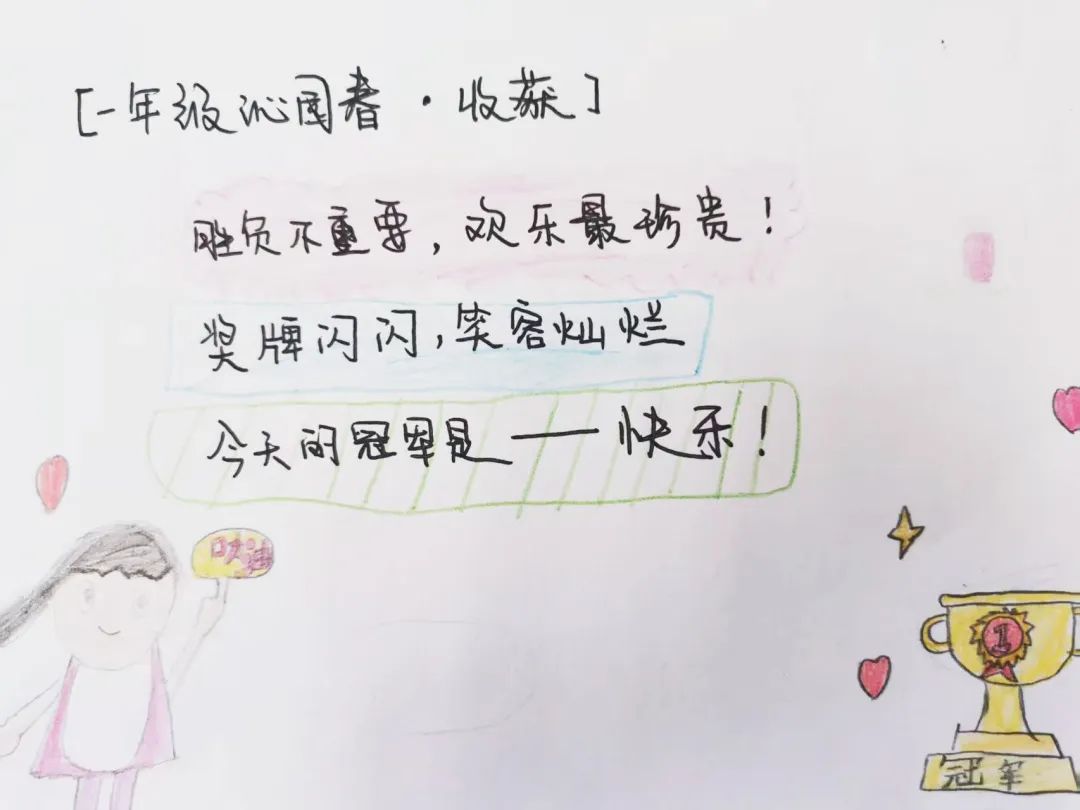 [一年级沁园春·收获]
胜负不重要，欢乐最珍贵！
奖牌闪闪，笑容灿烂
今天的冠军是——快乐！
加油
1
冠军